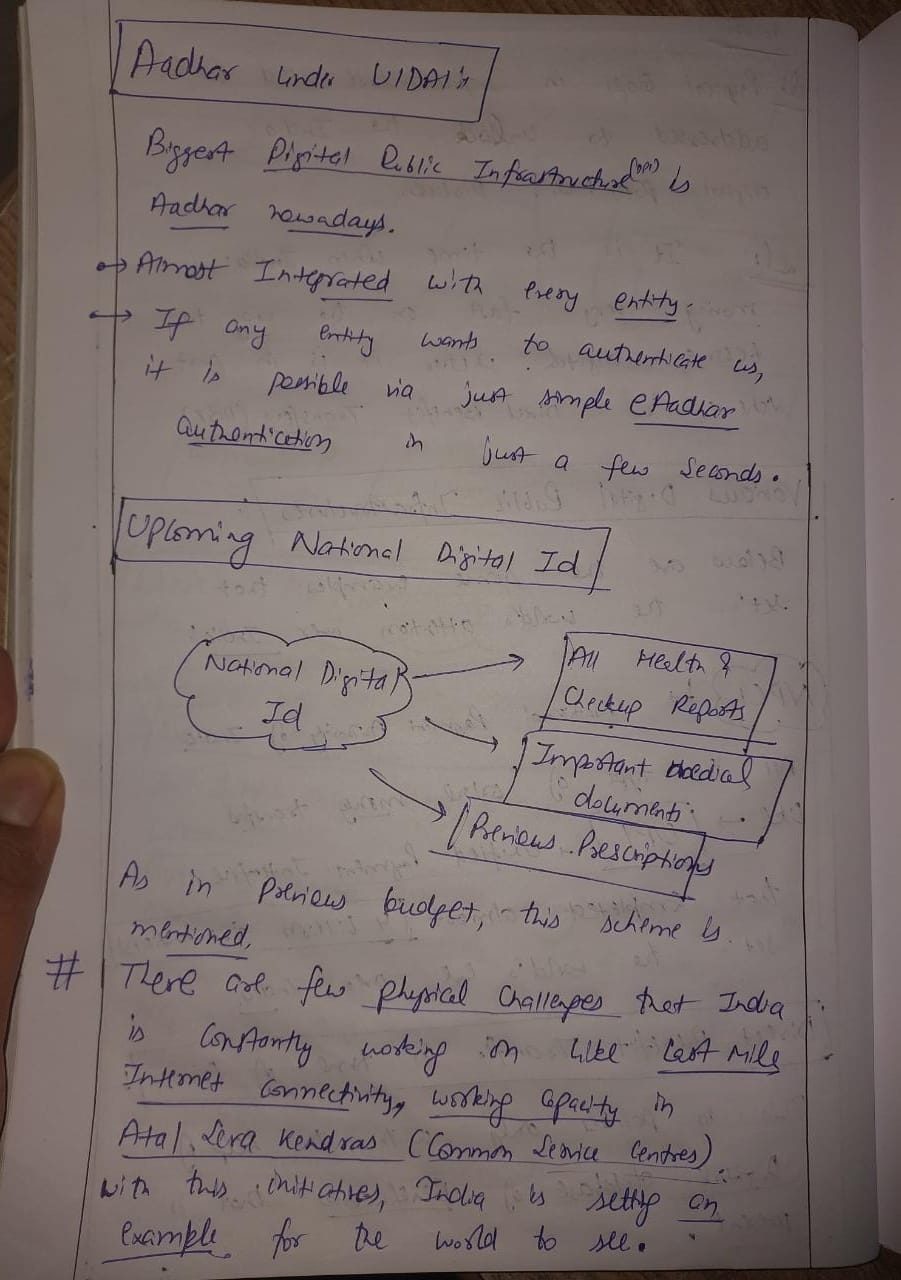 Aadhar under UIDAI:
Biggest Digital Public Infrastructure (DPI) is
Aadhar nowadays.
→ Almost Integrated with every entity.
→ If any entity wants to authenticate us,
it is possible via just simple eAadhar
authentication in just a few seconds.
Upcoming National Digital Id
National Digital
Id
All Health &
Checkup Reports
Important Medical
documents
Previous Prescriptions
As in previous budget, this scheme is
mentioned.
# There are few physical challenges that India
is constantly working on like Last Mile
Internet connectivity, working capacity in
Atal Seva Kendras (Common Service Centres).
with this initiatives, India is setting an
example for the world to see.